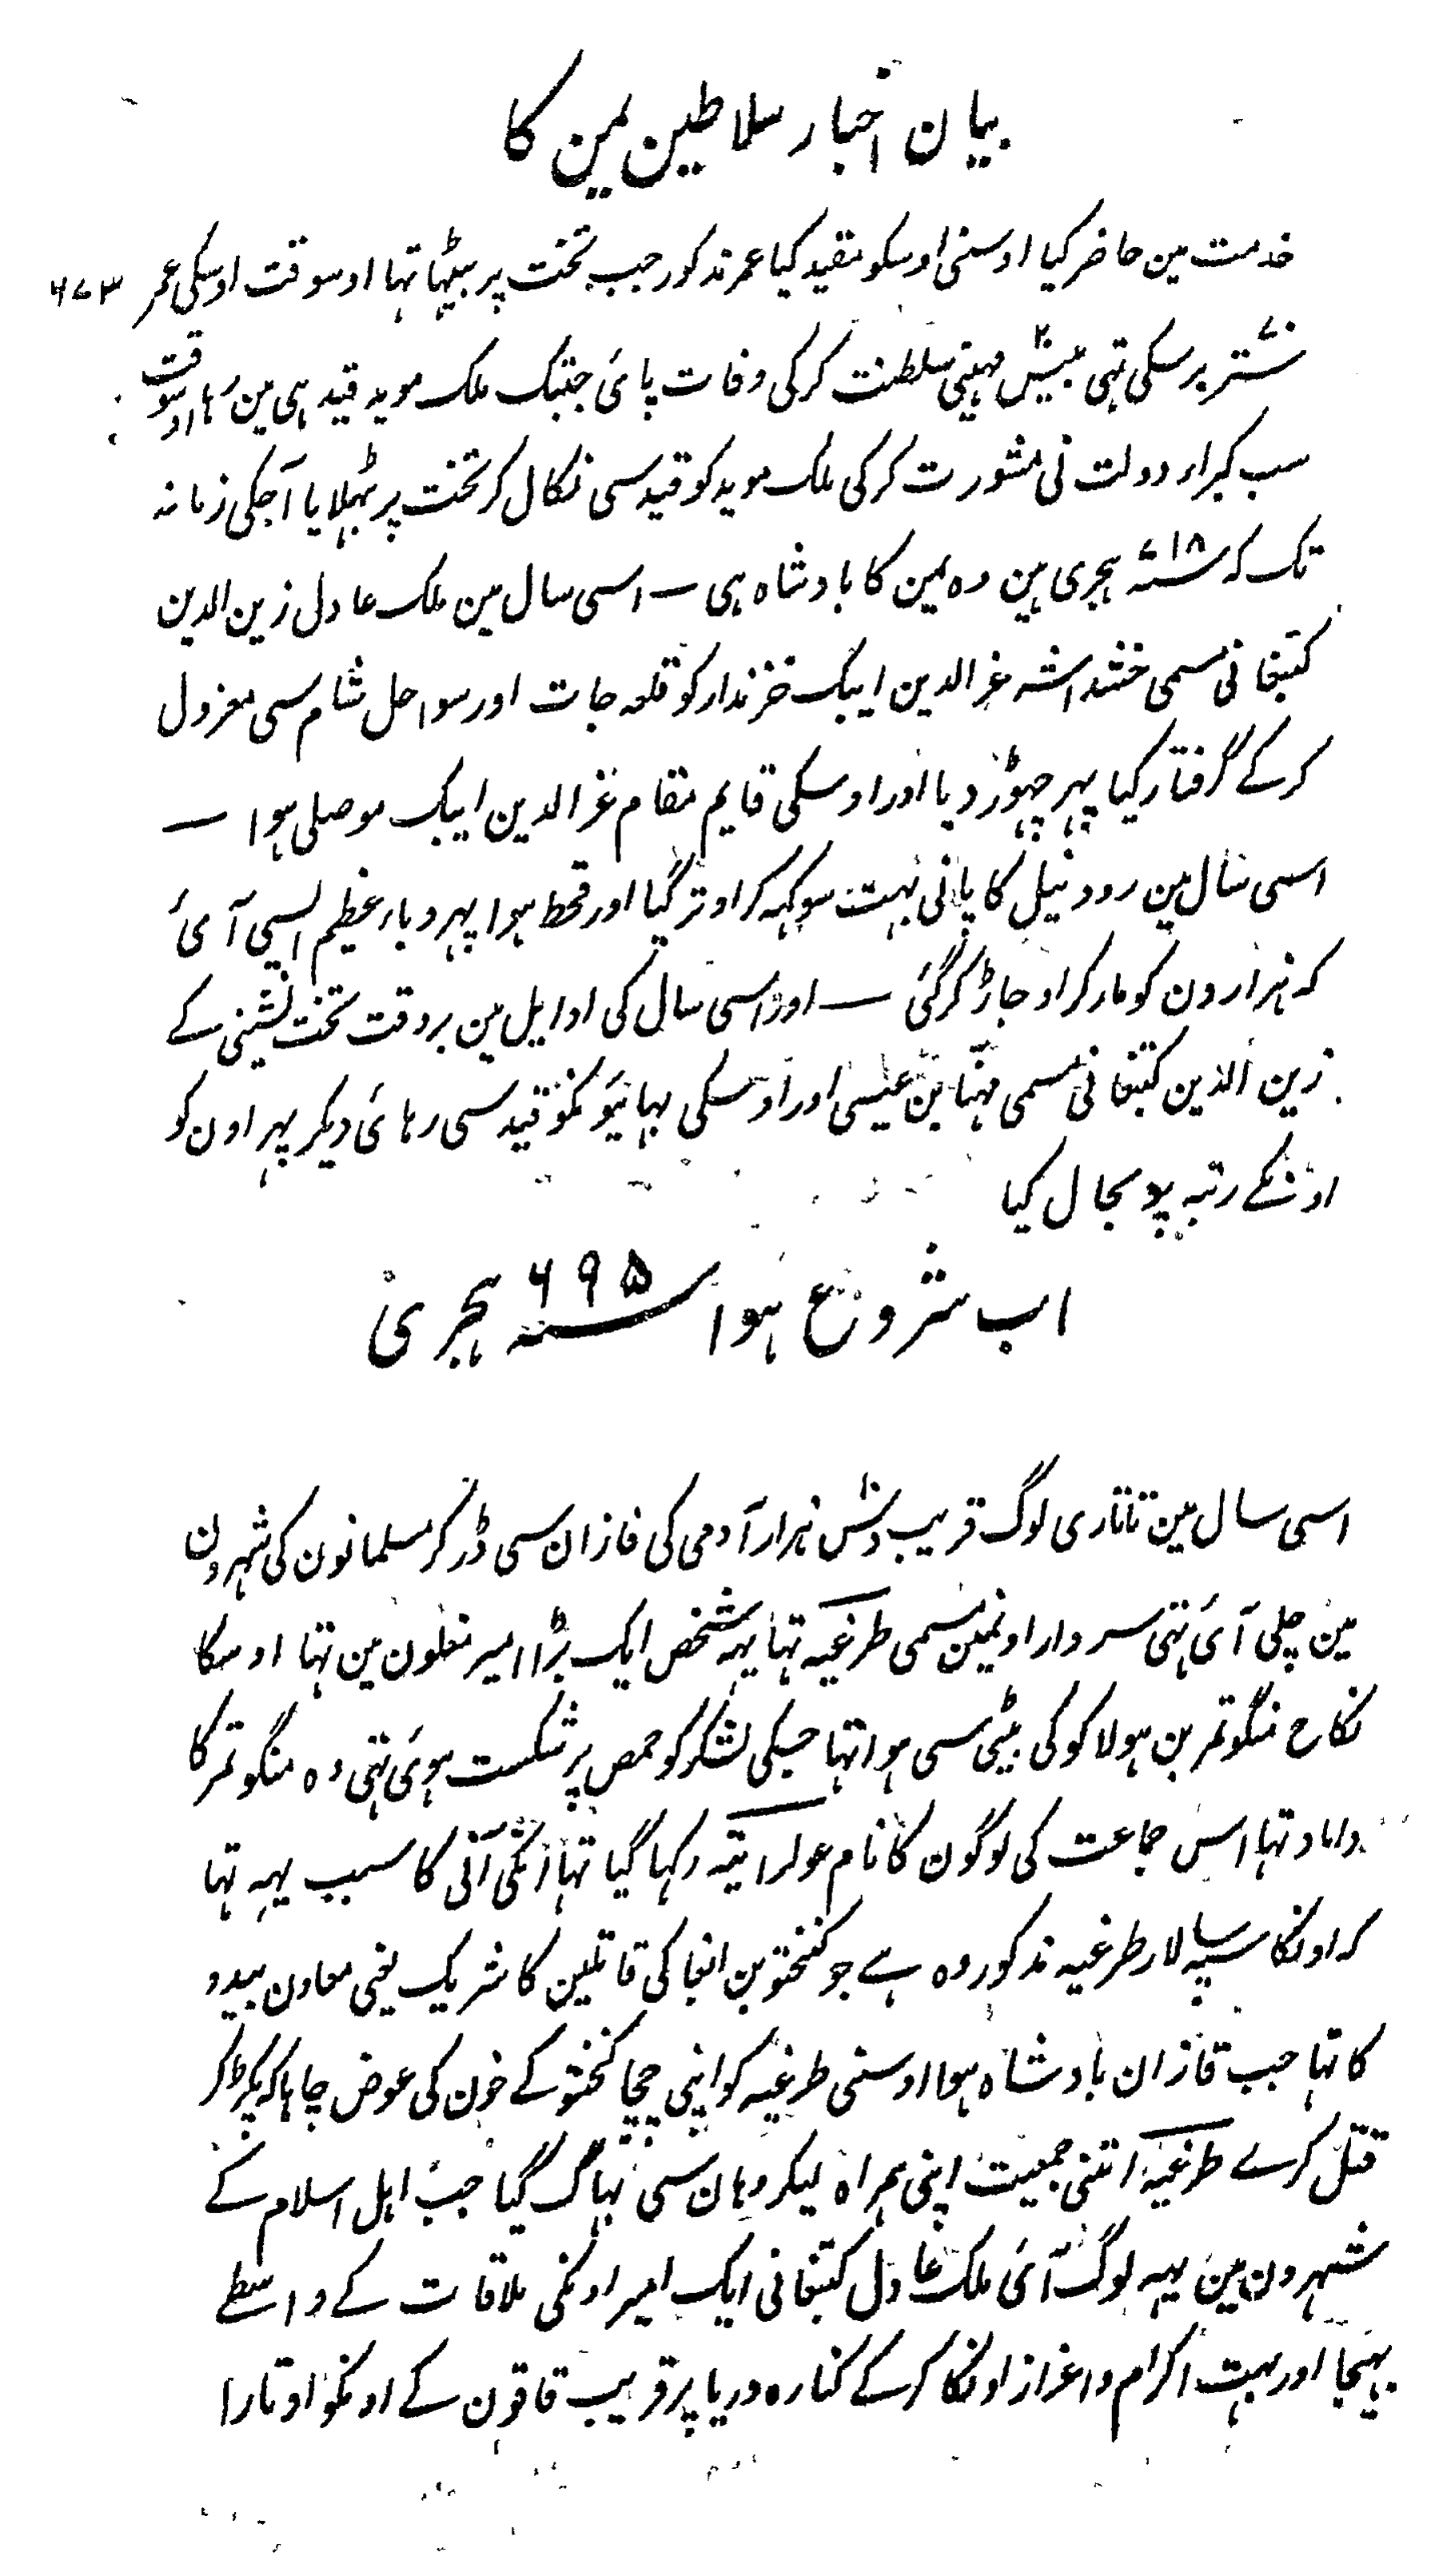 بیان اخبار سلاطین یمن کا
خدمت مین حاضر کیا اوسنی اوسکو مقید کیا عمر مذکور جب تخت پر بیٹہا تہا اوسوقت اوسکی عمر ۶۷۳
ستر۷۰ برسکی تہی بیس۲۰ مہینی سلطنت کرکی وفات پائی جبتک ملک موید قید ہی مین رہا اوسوقت
سب کبراء دولت نی مشورت کرکی ملک موید کو قید سی نکال کر تخت پر بٹہلایا آجکی زمانہ
تک کہ سنہ ۷۱۸ ہجری ہین وہ یمن کا بادشاہ ہی — اسی سال مین ملک عادل زین الدین
کتبغا نی مسمی خشداشہ عز الدین ایبک خزندار کو قلعہ جات اور سواحل شام سی معزول
کرکے گرفتار کیا پہر چہوڑ دیا اور اوسکی قایم مقام عز الدین ایبک موصلی ہوا —
اسی سال مین رود نیل کا پانی بہت سوکہہ کر اوتر گیا اور قحط ہوا پہر وباء عظیم ایسی آئی
کہ ہزارون کو مار کر اوجاڑ کر گئی — اور اسی سال کی اوایل مین بروقت تخت نشینی کے
زین الدین کتبغا نی مسمی مہنّا بن عیسی اور اوسکی بہائیونکو قید سی رہائی دیکر پہر اون کو
اونکے رتبہ پر بحال کیا
اب شروع ہوا سنہ ۶۹۵ ہجری
اسی سال مین تاتاری لوگ قریب دس۱۰ ہزار آدمی کی قازان سی ڈر کر مسلمانون کی شہرون
مین چلی آئی تہی سردار اونمین مسمی طرغیہ تہا یہہ شخص ایک بڑا امیر مغلون مین تہا اوسکا
نکاح منگوتمر بن ہولاکو کی بیٹی سی ہوا تہا جسکی لشکر کو حمص پر شکست ہوئی تہی وہ منگوتمر کا
داماد تہا اس جماعت کی لوگون کا نام عولراتیہ رکہا گیا تہا انکی آنی کا سبب یہہ تہا
کہ اونکا سپہ سالار طرغیہ مذکور وہ ہے جو کنختو بن ابغا کی قاتلین کا شریک یعنی معاون بیدو
کا تہا جب قازان بادشاہ ہوا اوسنی طرغیہ کو اپنی چچا کنختو کے خون کی عوض چاہا کہ پکڑ کر
قتل کرے طرغیہ اتنی جمعیت اپنی ہمراہ لیکر وہان سی بہاگ گیا جب اہل اسلام کے
شہرون مین یہہ لوگ آئی ملک عادل کتبغا نی ایک امیر اونکی ملاقات کے واسطے
بہیجا اور بہت اکرام و اعزاز اونکا کرکے کنارہ دریا پر قریب قاقون کے اونکو اوتارا